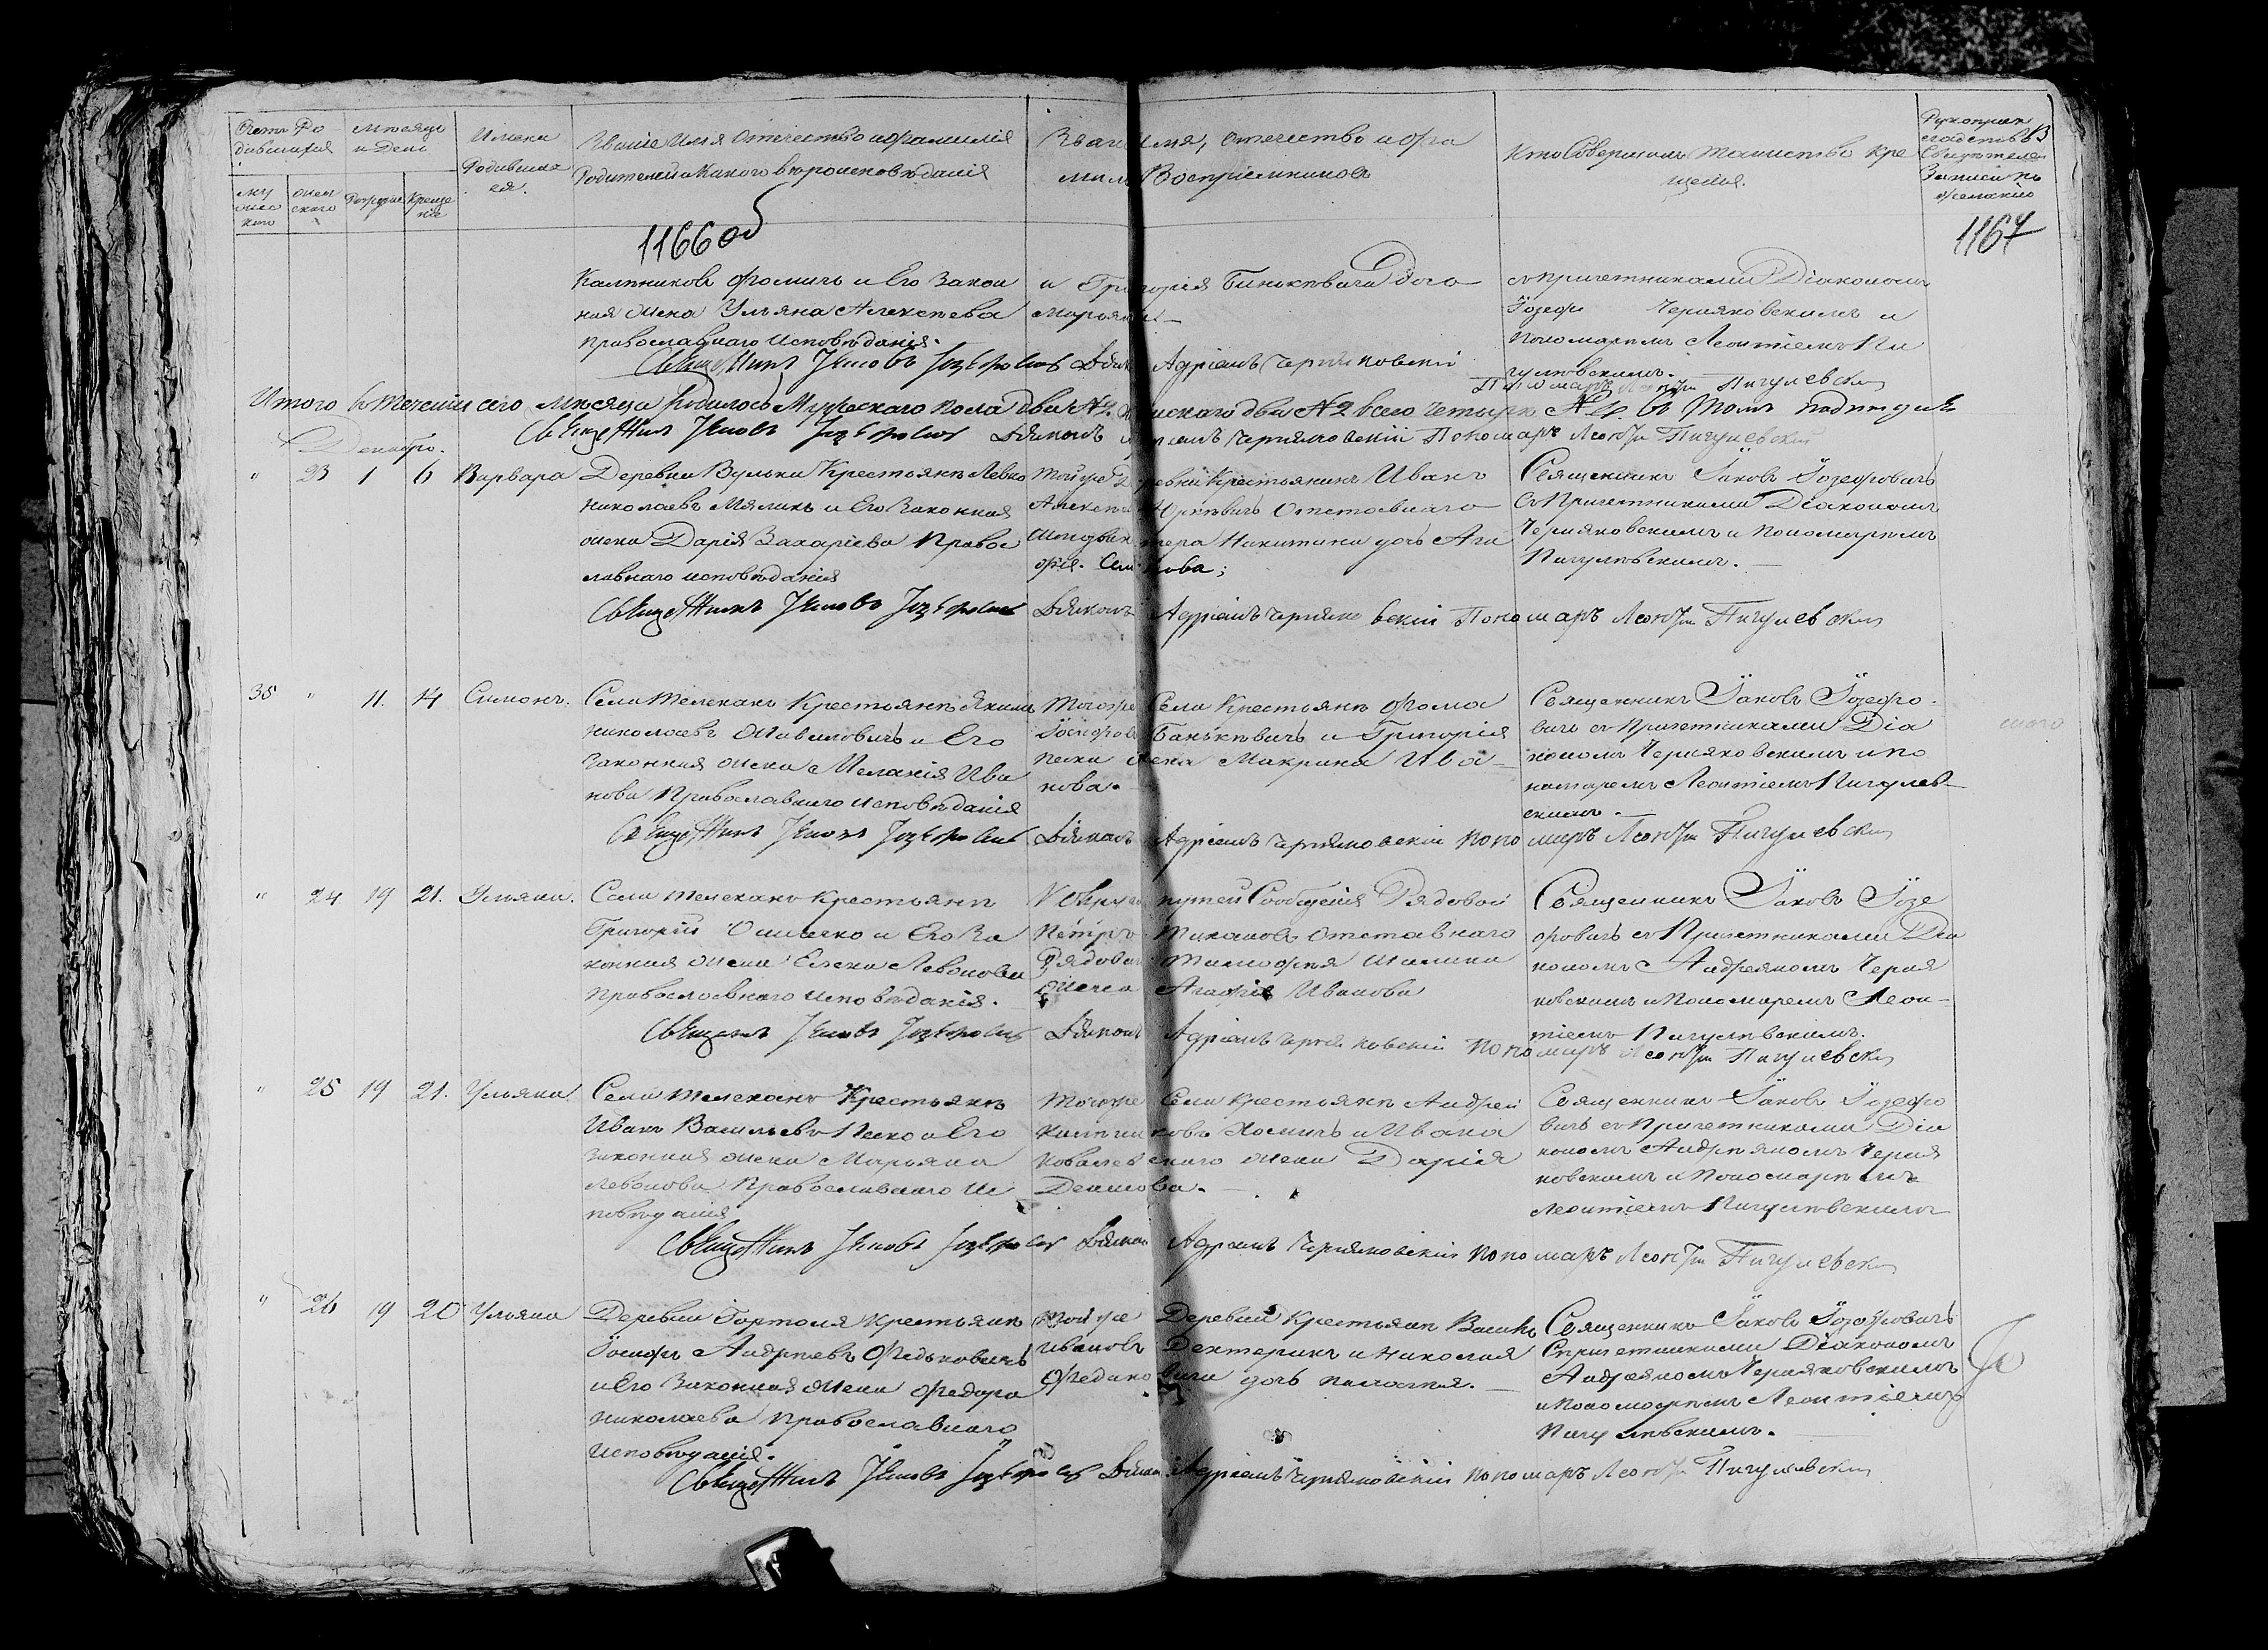 Счетъ Ро
дившихся
Мѣсяцъ
и День
Имена
Родивших
ся.
Званіе Имя Отчество и фамилія
Родителей и Какого вѣроисповѣданія
Званіе Имя, Отчество и фа
милія Воспріемниковъ
Кто Совершалъ Таинство Кре
щенія.
Рукоприк
ладство
Свидѣтелей
Записи по
желанію
му
жес
каго
жен
скаго
Рожденія
Креще
нія
1166 об
1167
Калениковъ Фомичъ и Его Закон
ная жена Ульяна Алексѣева
Православнаго исповѣданія.
и Григорія Бинькевича Дочь
Марьяна
съ причетниками Діакономъ
Іозефъ Черняковскимъ и
Пономаремъ Леонтіемъ Пи
гулевскимъ.
Священникъ Іаковъ Іозефовичъ Діяконъ Адріанъ Черняковскій
Пономаръ Леонтій Пигулевскій
Итого въ теченіи сего Мѣсяца родилось Мужескаго пола два №2. женскаго два №2 всего четыре №4 въ томъ подпис
Священникъ Іаковъ Іозефовичъ Діяконъ Адріанъ Черняковскій Пономарь Леонтій Пигулевскій
Декабрь.
" 23 1 6 Варвара
Деревни Вульки Крестьянъ Левко
Николаевъ Мяликъ и Его Законная
жена Дарія Захаріева Правос
лавнаго исповѣданія
Той же Деревни Крестьянинъ Иванъ
Алексѣевъ Юркевичъ Отставнаго
Никитина дочь Ага
фія.
Священникъ Іаковъ Іозефовичъ
Съ Причетниками Діакономъ
Черняковскимъ и Пономаремъ
Пигулевскимъ.
Священникъ Іаковъ Іозефовичъ Діяконъ Адріанъ Черняковскій Пономаръ Леонтій Пигулевскій
35 " 11. 14 Симонъ.
Села Телеханъ Крестьянъ Якимъ
Николаевъ и Его
Законная жена Меланія Ива
нова Православнаго исповѣданія
Того же Села Крестьянъ Фома
Іосифовъ Банькевичъ и Григорія
Пески жена Макрина Ива
нова.
Священникъ Іаковъ Іозефо
вичъ съ Причетниками Діа
кономъ Черняковскимъ и по
номаремъ Леонтіемъ Пигулев
скимъ.
Священникъ Іаковъ Іозефовичъ Діяконъ Адріанъ Черняковскій Пономаръ Леонтій Пигулевскій
" 24 19 21. Ульяна.
Села Телеханъ Крестьянъ
Григорій и Его За
конная жена Елена Левонова
Православнаго исповѣданія.
путей Сообщенія Рядовой
Петръ Отставнаго
Рядоваго Тимофея
жена Агафія Иванова
Священникъ Іаковъ Іозе
фовичъ съ Причетниками Діа
кономъ Андреяномъ Черня
ковскимъ и Пономаремъ Леон
тіемъ Пигулевскимъ.
Священникъ Іаковъ Іозефовичъ Діяконъ Адріанъ Черняковскій Пономаръ Леонтій Пигулевскій
" 25 19 21. Ульяна.
Села Телеханъ Крестьянъ
Иванъ Васильевъ Песко и Его
законная жена Марьяна
Левонова Православнаго Ис
повѣданія
Того же Села Крестьянъ Андрей
Калениковъ Хомичъ и Ивана
Ковалевскаго жена Дарія
Денисова.
Священникъ Іаковъ Іозефо
вичъ съ Причетниками Діа
кономъ Андреяномъ Черня
ковскимъ и Пономаремъ
Леонтіемъ Пигулевскимъ
Священникъ Іаковъ Іозефовичъ Діяконъ Адріанъ Черняковскій Пономаръ Леонтій Пигулевскій
" 26 19 20 Ульяна
Деревни Гортоля Крестьянъ
Іосифъ Андреевъ Федьковичъ
и Его Законная жена Федора
Николаева Православнаго
исповѣданія.
Той же Деревни Крестьянъ
Ивановъ Дехтерикъ и Николая
Федьковича дочь
Священникъ Іаковъ Іозефовичъ
Съ причетниками Діакономъ
Андреяномъ Черняковскимъ
и Пономаремъ Леонтіемъ
Пигулевскимъ.
Священникъ Іаковъ Іозефовичъ Діяконъ Адріанъ Черняковскій Пономаръ Леонтій Пигулевскій